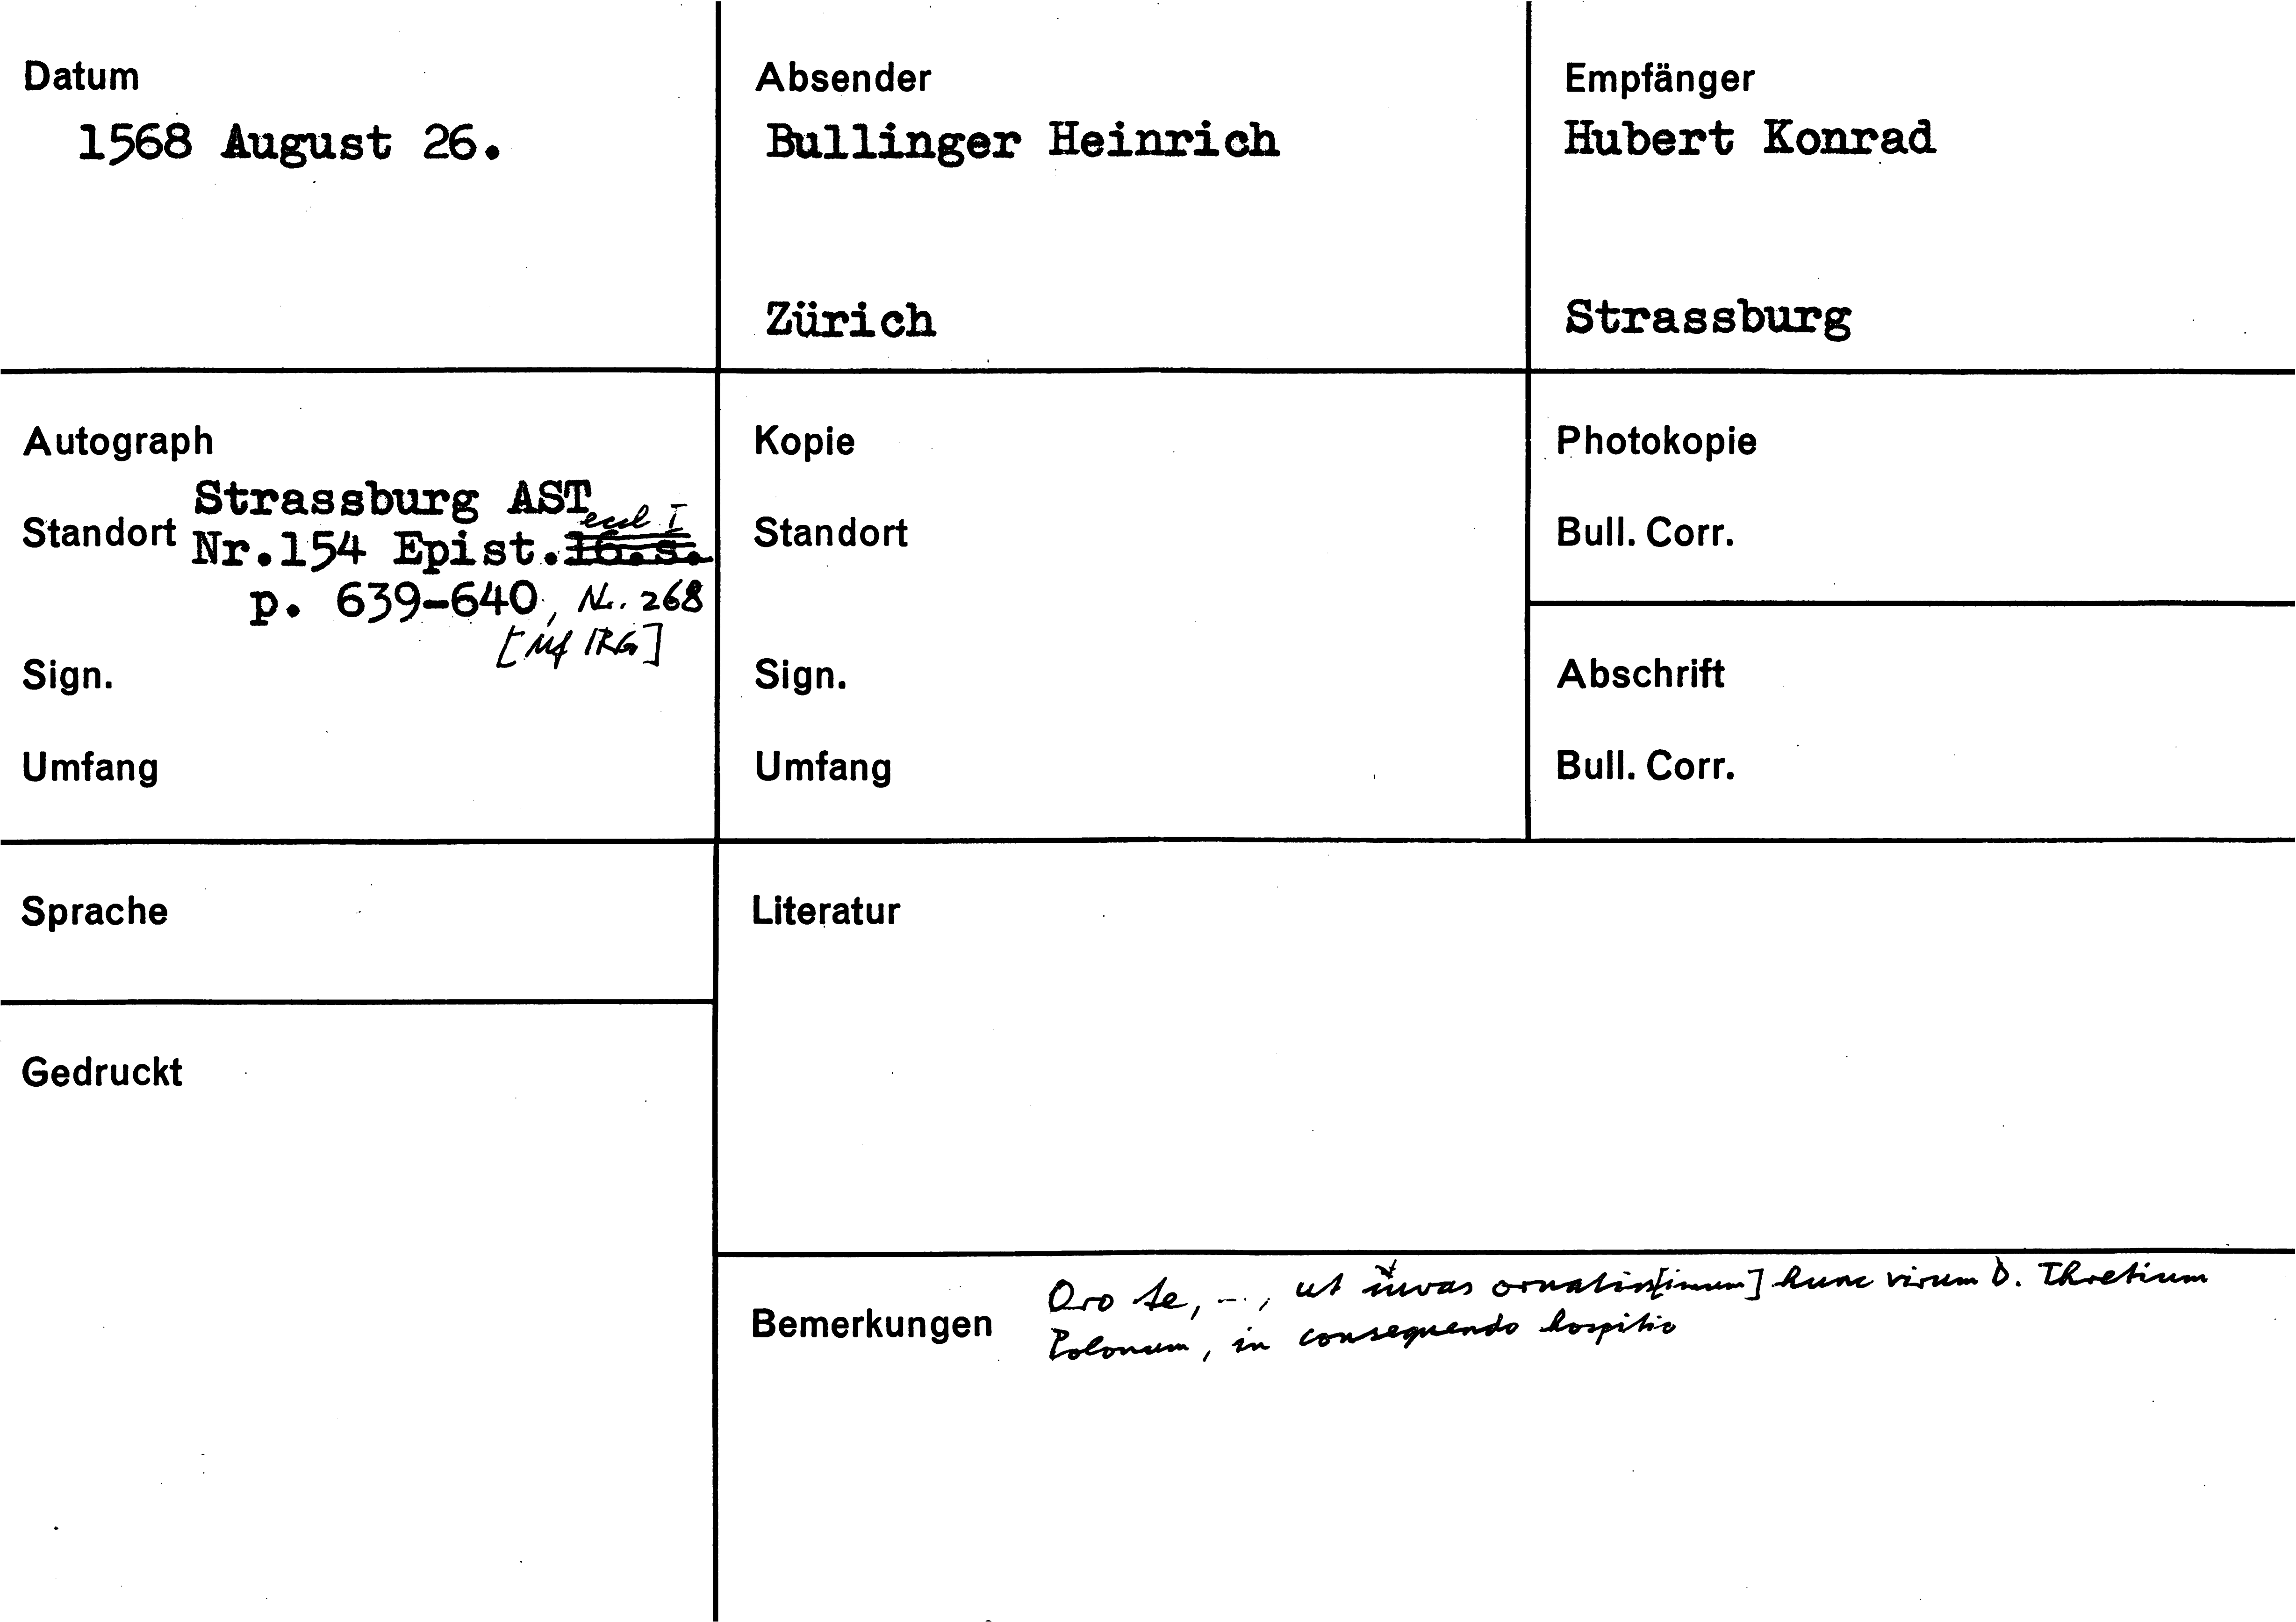 Datum
1568 August 26.
Absender
Bullinger Heinrich
Zürich
Empfänger
Hubert Konrad
Strassburg
Autograph
Standort
Strassburg AST
eccl I
Nr.154 Epist. 16.s.
p. 639-640, Nr. 268
[Mf IRG]
Sign.
Umfang
Kopie
Standort
Sign.
Umfang
Photokopie
Bull. Corr.
Abschrift
Bull. Corr.
Sprache
Gedruckt
Literatur
Bemerkungen
Oro te, ..., ut iuvas ornatiss[imum] hunc virum D. Thretium
Polonum, in consequendo hospitio